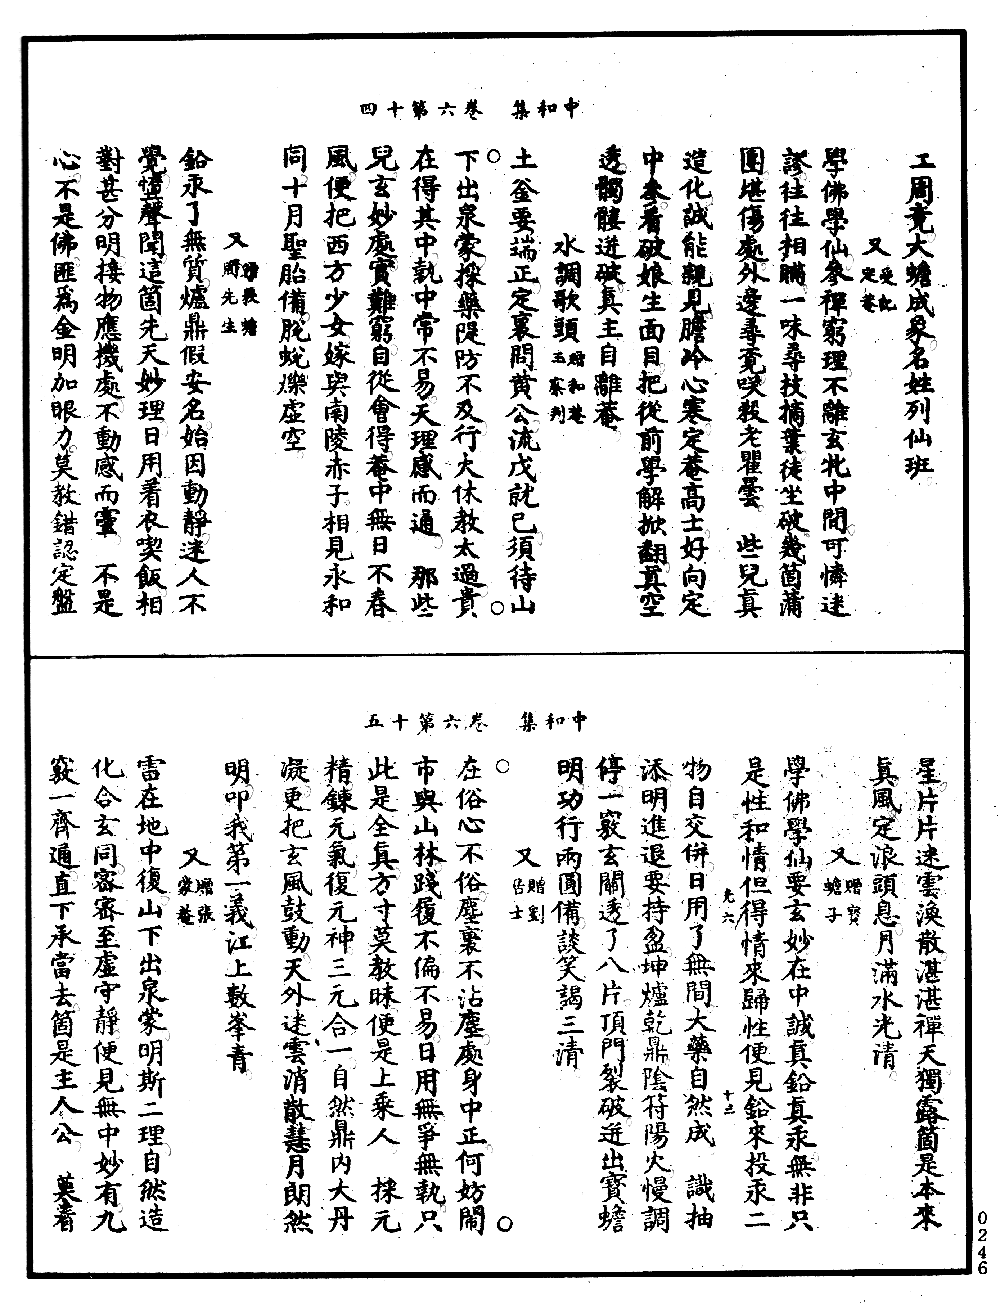 中和集　卷六第十四
工周竟大蟾成象名姓列仙班
又受記定菴
學佛學仙參禪窮理不離玄牝中間可憐迷
謬往往相瞞一味尋枝摘葉徒坐破幾箇蒲
團堪傷處外邊尋覓咲殺老瞿曇　些兒真
造化誠能覷見膽冷心寒定菴高士好向定
中參看破娘生面目把從前學解掀翻真空
透髑髏迸破真主自離菴
水調歌頭贈和菴王察判
土釜要端正定裏問黃公流戊就己須待山
下出泉蒙採藥隄防不及行火休教太過貴
在得其中執中常不易天理感而通　那些
兒玄妙處實難窮自從會得菴中無日不春
風便把西方少女嫁與南陵赤子相見永和
同十月聖胎備脫蛻爍虛空
又贈長蟾周先生
鉛汞了無質爐鼎假安名始因動靜迷人不
覺墮聲聞這箇先天妙理日用着衣喫飯相
對甚分明接物應機處不動感而靈　不是
心不是佛匪為金明加眼力莫教錯認定盤
中和集　卷六第十五
星片片迷雲渙散湛湛禪天獨露箇是本來
真風定浪頭息月滿水光清
又贈寶蟾子
學佛學仙要玄妙在中誠真鉛真汞無非只
是性和情但得情來歸性便見鉛來投汞二
光六　十三
物自交併日用了無間大藥自然成　識抽
添明進退要持盈坤爐乾鼎陰符陽火慢調
停一竅玄關透了八片頂門裂破迸出寶蟾
明功行兩圓備談笑謁三清
又贈劉居士
在俗心不俗塵裏不沾塵處身中正何妨鬧
市與山林踐履不偏不易日用無爭無執只
此是全真方寸莫教昧便是上乘人　採元
精鍊元氣復元神三元合一自然鼎内大丹
凝更把玄風鼓動天外迷雲消散慧月朗然
明叩我第一義江上數峯青
又贈張蒙菴
雷在地中復山下出泉蒙明斯二理自然造
化合玄同密密至虛守靜便見無中妙有九
竅一齊通直下承當去箇是主人公　莫着
0246